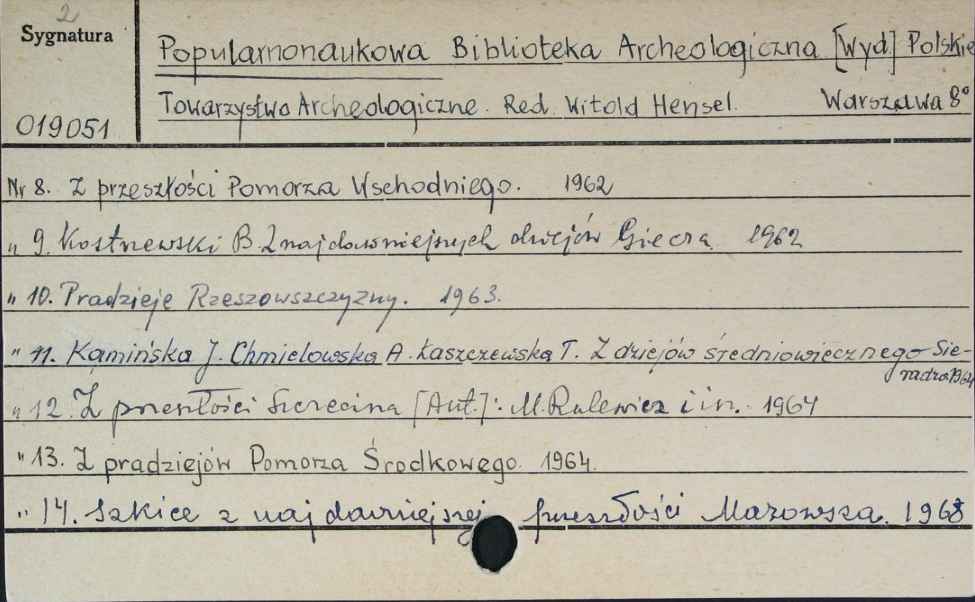 2
Sygnatura
Popularnonaukowa Biblioteka Archeologiczna [Wyd] Polskie
Towarzystwo Archeologiczne. Red. Witold Hensel. Warszawa 8°
019051
Nr 8. Z przeszłości Pomorza Wschodniego. 1962
" 9. Kostrzewski B. Z najdawniejszych dziejów Giecza 1962
" 10. Pradzieje Rzeszowszczyzny. 1963.
" 11. Kamińska J. Chmielowska A. Łaszczewska T. Z dziejów średniowiecznego Sie-
radza 1964
" 12. Z przeszłości Szczecina [Aut.]: M. Rulewicz i in. 1964
" 13. Z pradziejów Pomorza Środkowego. 1964.
" 14. Szkice z najdawniejszej przeszłości Mazowsza. 1968